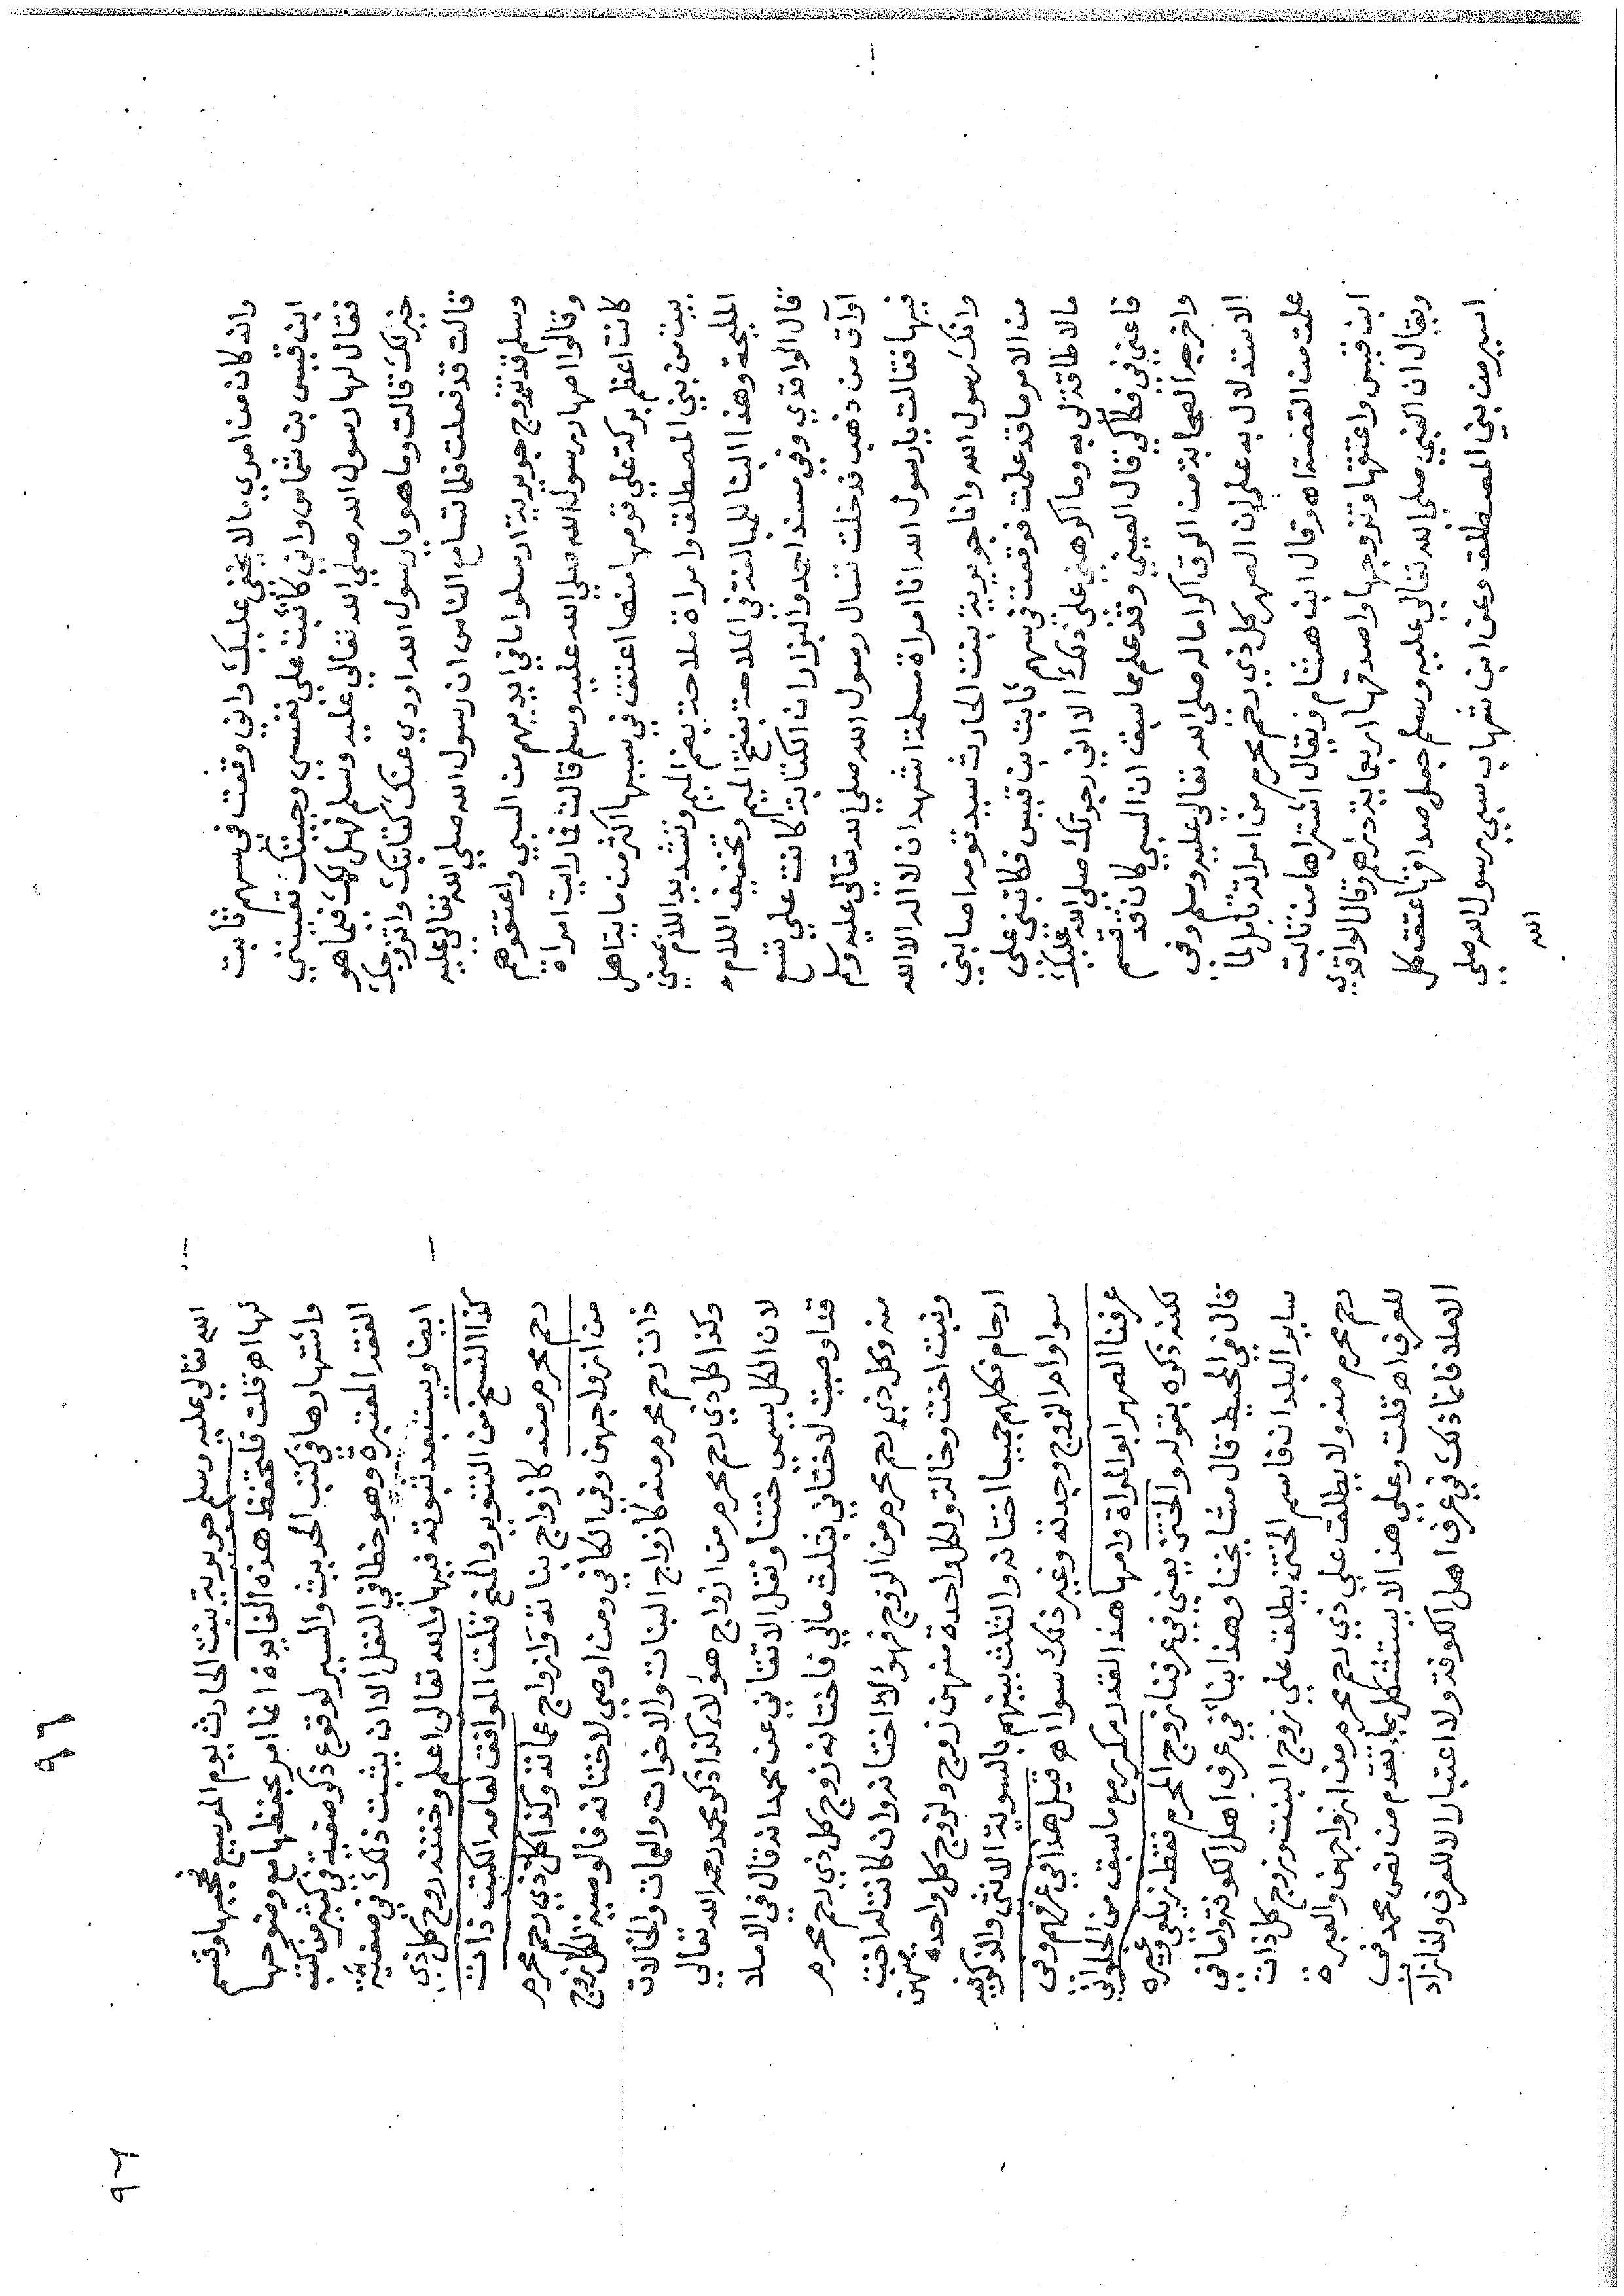 وانه كان من امري مالا يخفى عليك واني وقعت في سهم ثابت
ابن قيس بن شماس واني كاتبت على نفسي وجيتك تعينني
فقال لها رسول الله صلى الله تعالى عليه وسلم فهل لك فيما هو
خير لك قالت وما هو يا رسول الله اودي عنك كتابتك واتزوجك
قالت قد فعلت فلما تسامع الناس ان رسول الله صلى الله تعالى عليه
وسلم قد تزوج جويرية ارسلوا ما في ايديهم من السبي واعتقوهم
وقالوا اصهار رسول الله صلى الله عليه وسلم قالت فما رايت امراة
كانت اعظم بركة على قومها منها اعتق في سببها اكثر من ماية اهل
بيت من بني المصطلق وامراة ملاحة بضم الميم وتشديد اللام بمعنى
المليحة وهذا البنا للمبالغة في الملاحة بفتح الميم وتخفيف اللام
قال الواقدي وفي مسند احمد والبزار ان الكتابة كانت على تسع
اواق من ذهب فدخلت تسال رسول الله صلى الله تعالى عليه وسلم
فيها فقالت يا رسول الله انا امراة مسلمة اشهد ان لا اله الا الله
وانك رسول الله وانا جويرية بنت الحارث سيد قومه اصابني
من الامر ما قد علمت فوقعت في سهم ثابت بن قيس فكاتبني على
مالا طاقة لي به وما اكرهني على ذلك الا اني رجوتك صلى الله عليك
فاعني في فكاكي قال العيني وقد علم مما سبق ان السبي كان قد قسم
واخرجه الصحابة من الرق اكراما له صلى الله تعالى عليه وسلم وفي
الاستدلال به على ان الصهر كل ذي رحم محرم من امراته تامل لما
علمت من القصة اه وقال ابن هشام ويقال اشتراها من ثابت
ابن قيس واعتقها وتزوجها واصدقها اربعماية درهم وقال الواقدي
ويقال ان النبي صلى الله تعالى عليه وسلم جعل صداقها عتق كل
اسير من بني المصطلق وعن ابن شهاب سبى رسول الله صلى
الله
٩٦
٩٦
الله تعالى عليه وسلم جويرية بنت الحارث يوم المريسيع فحجبها وقسم
لها اه قلت فلتحفظ هذه الفايدة انما امر بحفظها مع وضوحها
واشتهارها في كتب الحديث والسير لوقوع ذكر صفية في كثير من كتب
الفقه المعتبرة وهو خطا في النقل الا ان يثبت ذلك في صفية
ايضا ويستبعد ثبوته فيها والله تعالى اعلم وختنه زوج كل ذي
كذا النسخ من التنوير والمنح قلت الموافق لعامة الكتب ذات
رحم محرم منه كازواج بناته وازواج عماته وكذا كل ذي رحم محرم
من ازواجهن وفي الكافي ومن اوصى لاختانه فالوصية لكل زوج
ذات رحم محرم منه كازواج البنات والاخوات والعمات والخالات
وكذا كل ذي رحم محرم من ازواج هؤلاء كذا ذكر محمد رحمه الله تعالى
لان الكل يسمى ختنا ونقل الاتقاني عن محمد انه قال في الاملا
قد اوصيت لاختاني بثلث مالي فاختانه زوج كل ذي رحم محرم
منه وكل ذي رحم محرم من الزوج فهؤلا اختانه وان كانت له اخت
وبنت اخت وخالة ولكل واحدة منهن زوج ولزوج كل واحدة منهن
ارحام فكلهم جميعا اختانه والثلث بينهم بالسوية الانثى والذكر فيه
سوا وام الزوج وجدته وغير ذلك سوا اه قيل هذا في عرفهم وفي
عرفنا الصهر ابو المراة وامها هذا القدر مكرر مع ما سبق من الحلواني
لكنه ذكره بقوله والختن يعني في عرفنا زوج المحرم فقط زيلعي وغيره
قال في المحيط قال مشايخنا وهذا بناء في عرف اهل الكوفة واما في
ساير البلدان فاسم الختن يطلق على زوج البنت وزوج كل ذات
رحم محرم منه ولا يطلق على ذي رحم محرم من ازواجهن والعبرة
للعرف اه قلت وعلى هذا لا يستشكل بما تقدم من نص محمد في
العلة فانما ذلك في عرف اهل الكوفة ولا اعتبار الا للعرف ولذا زاد